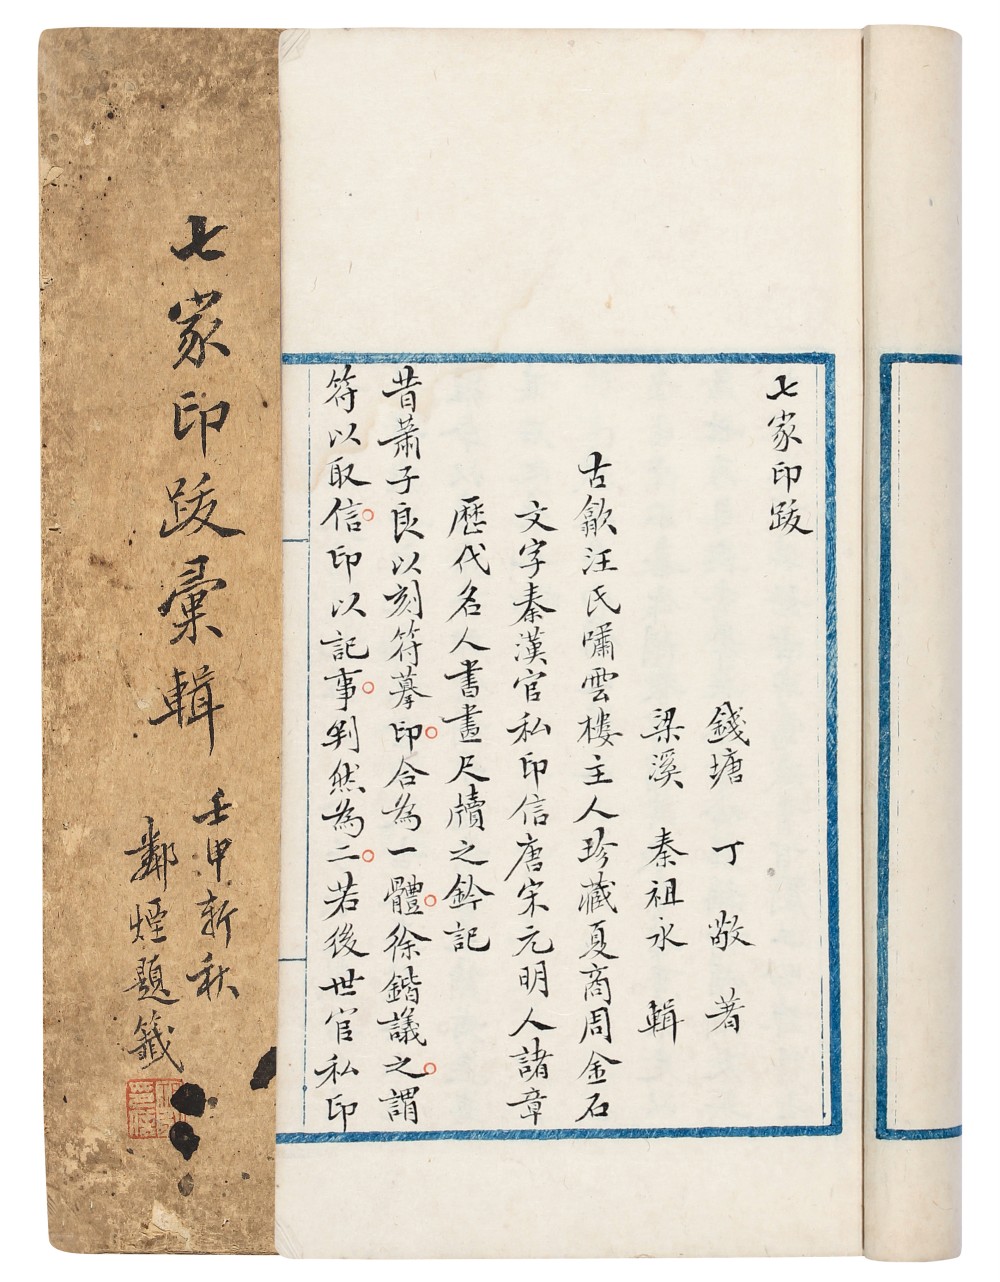 七家印跋
錢塘 丁敬 著
梁溪 秦祖永 輯
古歙汪氏嘯雲樓主人珍藏夏商周金石
文字秦漢官私印信唐宋元明人諸章
歷代名人書畫尺牘之鈐記
昔蕭子良以刻符摹印合為一體徐鍇議之謂
符以取信印以記事判然為二若後世官私印
七家印跋彙輯
壬申新秋
鄰煙題籤